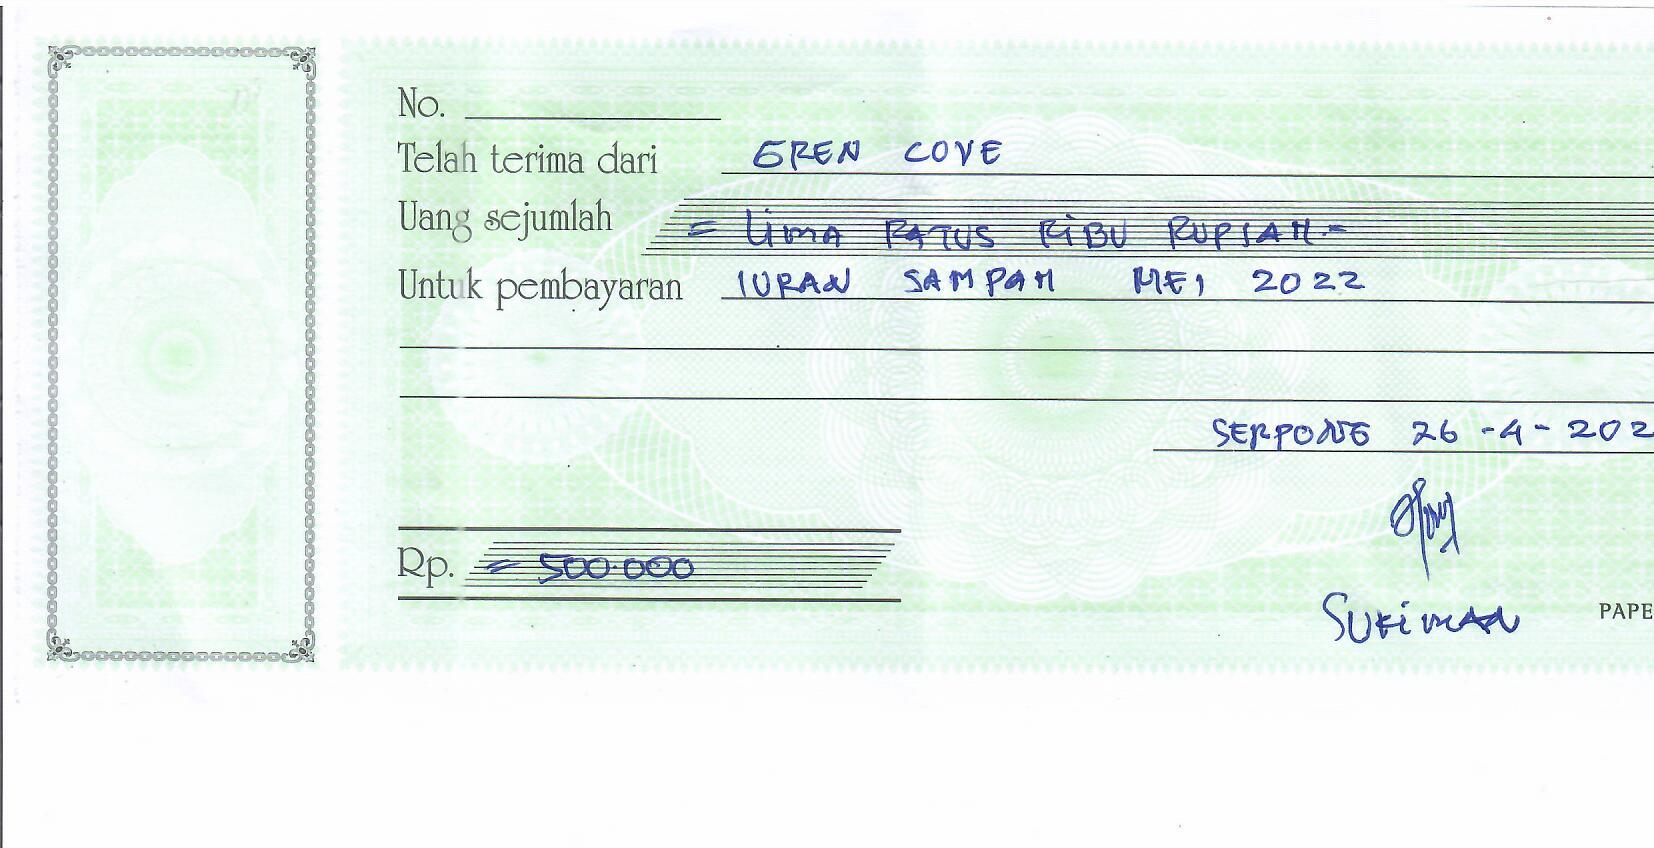 No.
Telah terima dari EREN COVE
Uang sejumlah = Lima RATUS RiBU RUPIAH -
Untuk pembayaran IURAN SAMPAH MEI 2022
SERPONG 26 - 4 - 202
Rp. = 500.000
SUKiMAN
PAPE